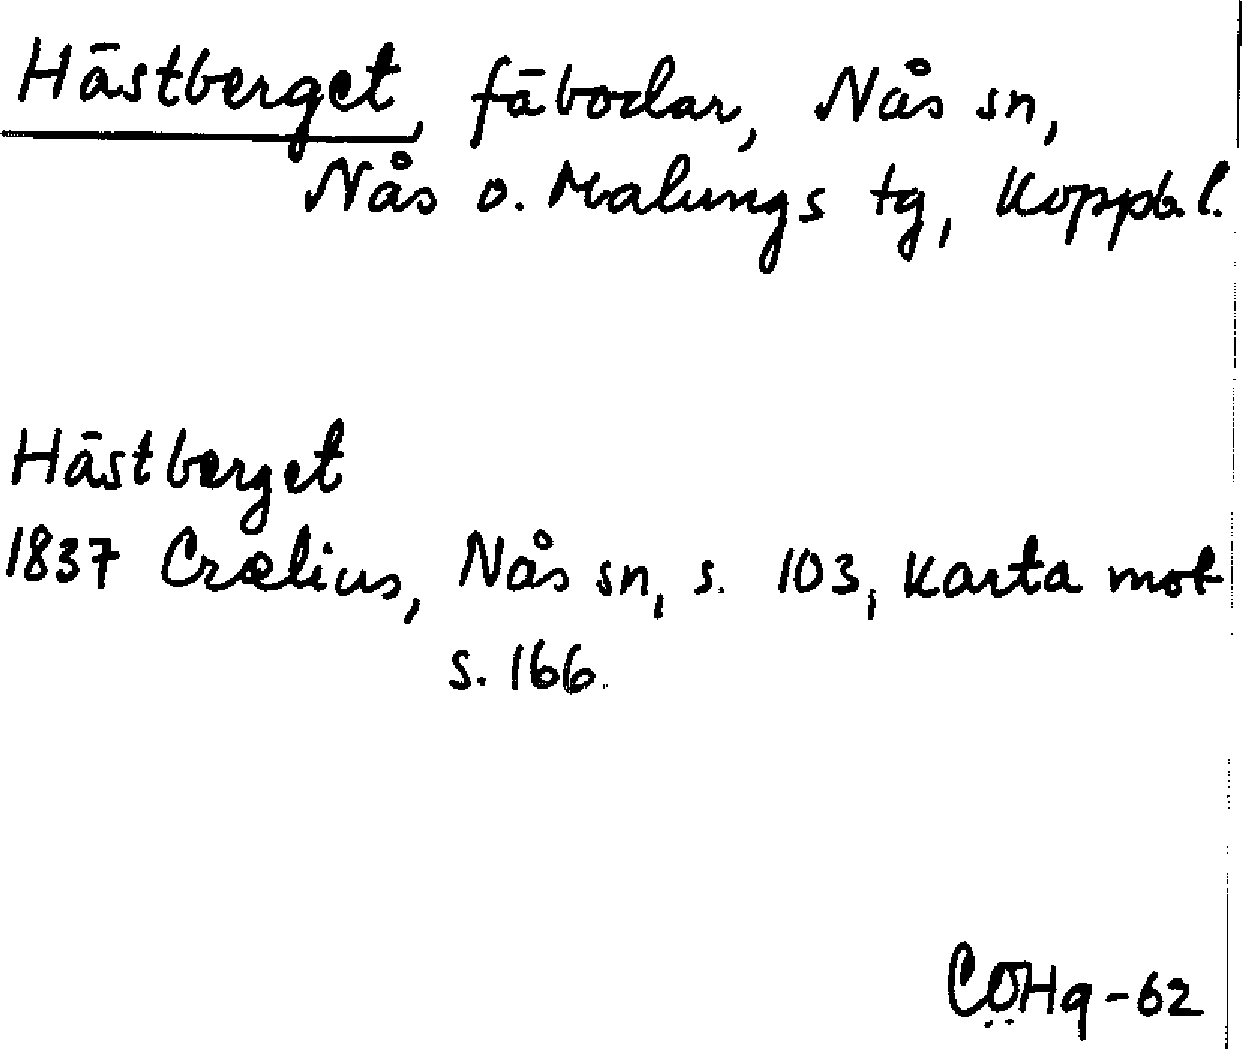 Hästberget, fäbodar, Nås sn,
Nås o. Malungs tg, Koppb. l.
Hästberget
1837 Crælius, Nås sn, s. 103, Karta mot
s. 166.
CÖHg-62